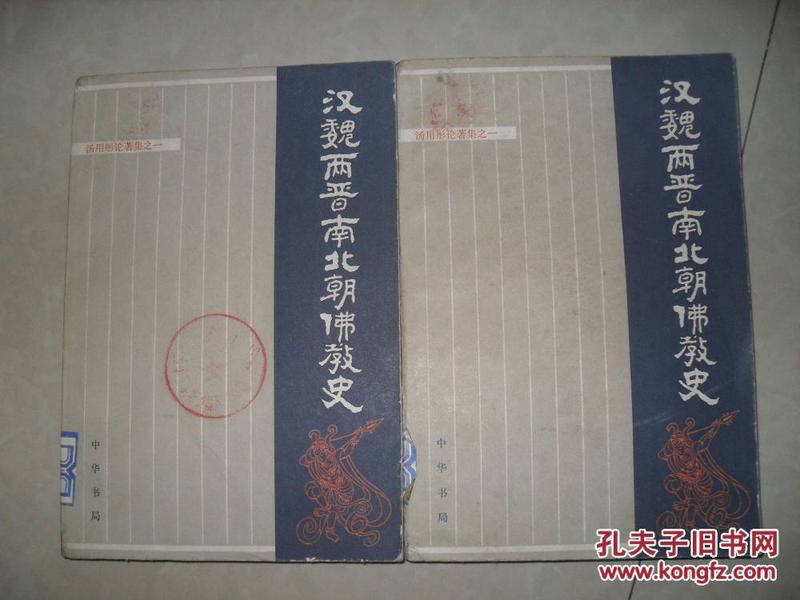 汤用彤论著集之一
汉魏两晋南北朝佛教史
中华书局
汤用彤论著集之一
汉魏两晋南北朝佛教史
中华书局
孔夫子旧书网
www.kongfz.com